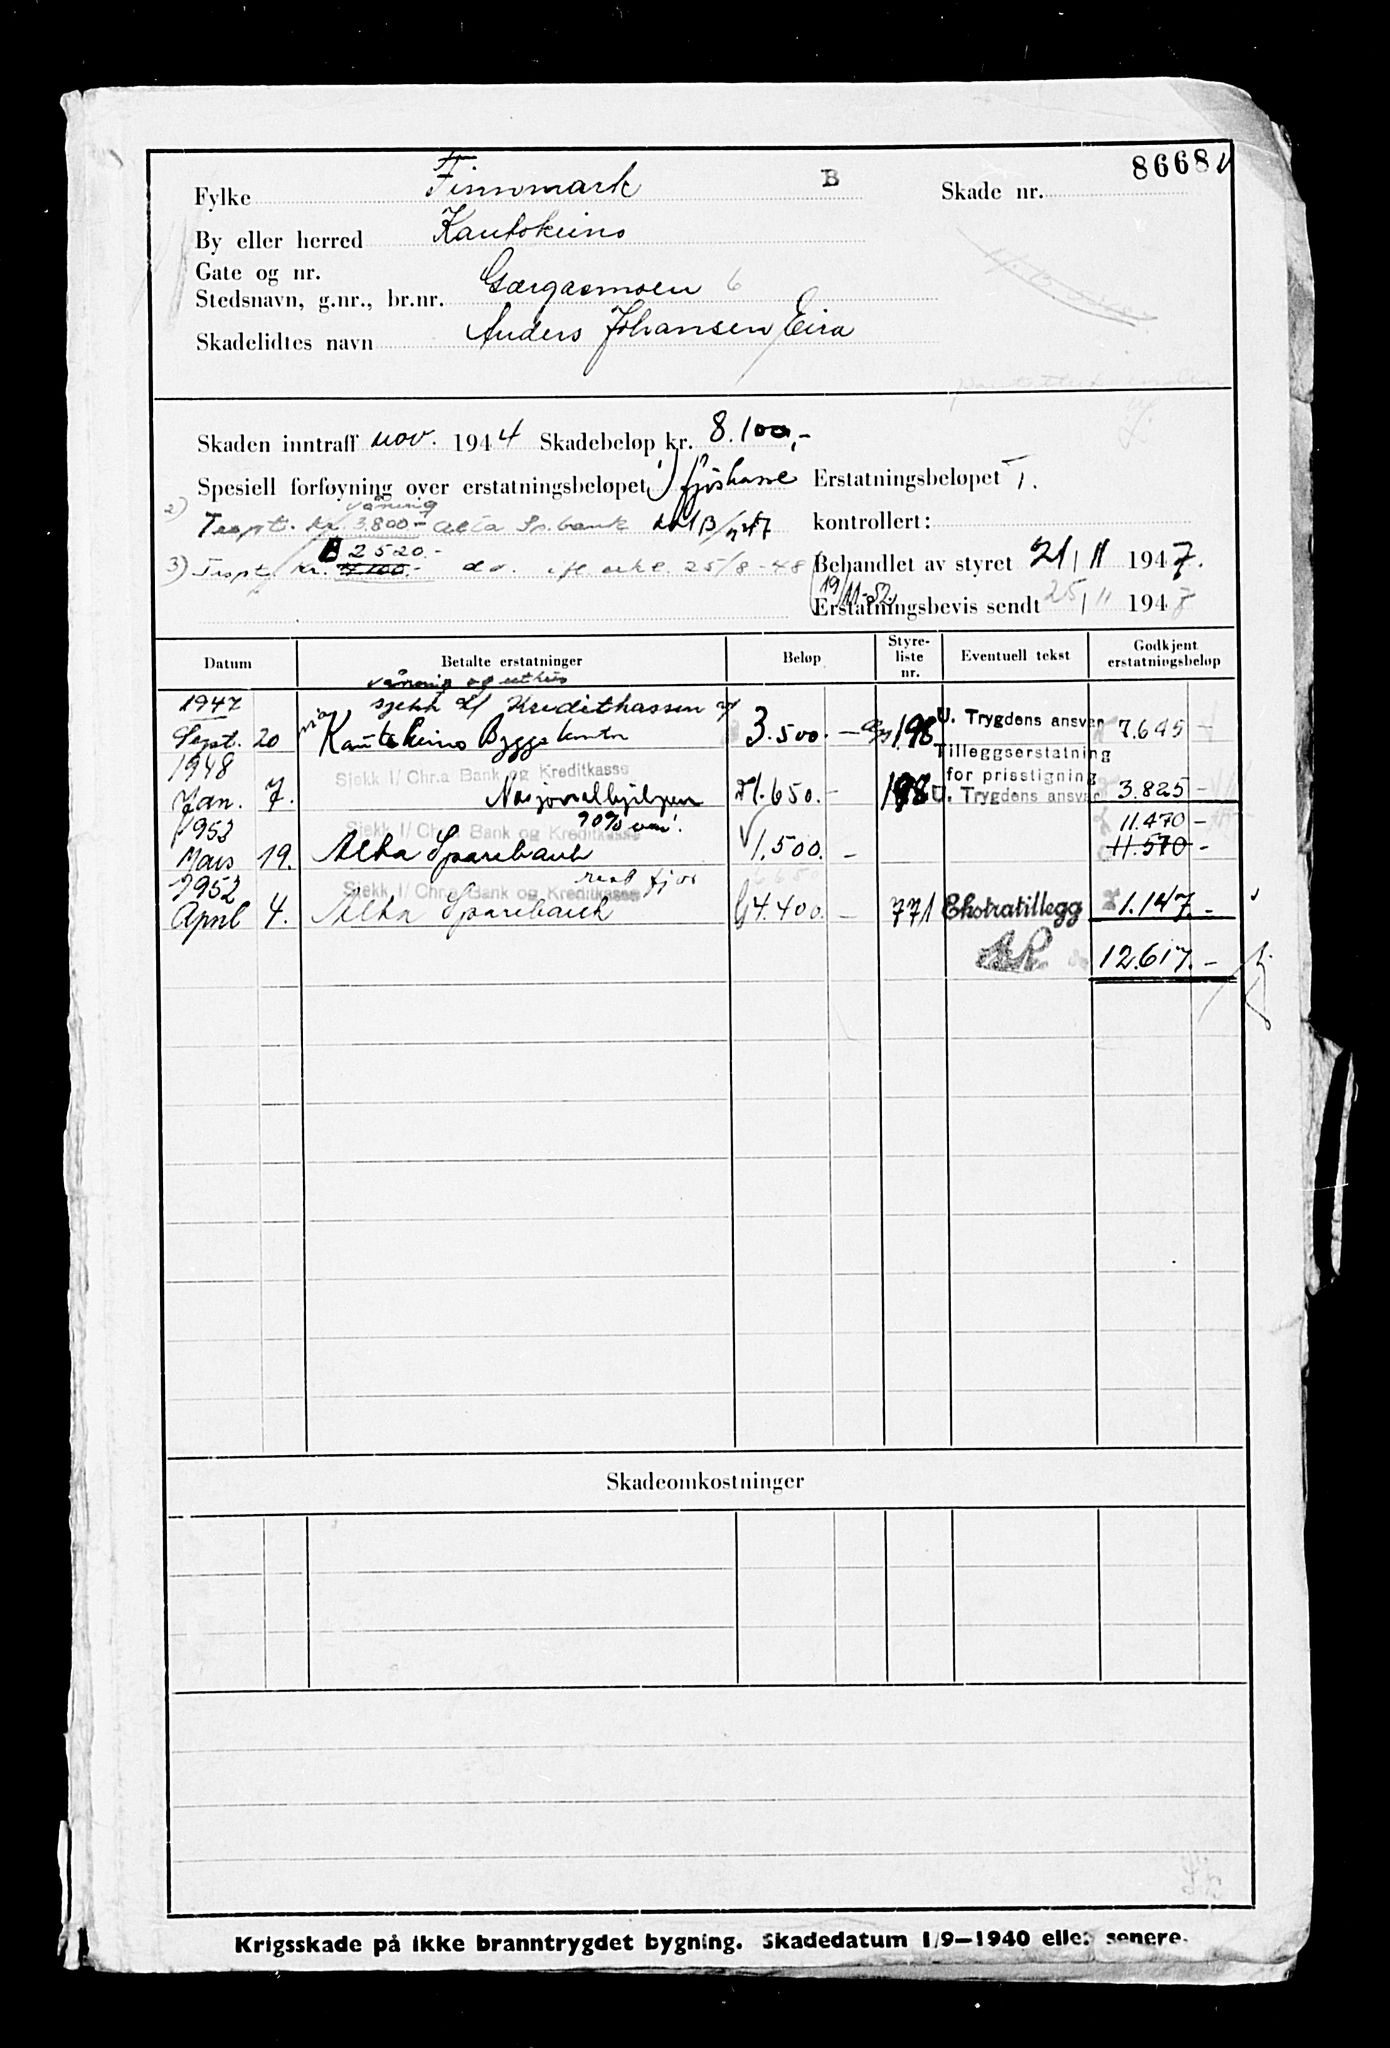 Fylke Finnmark B Skade nr. 8668
By eller herred Kautokeino
Gate og nr.
Stedsnavn, g.nr., br.nr. Gargasmoen 6
Skadelidtes navn Anders Johansen Eira
Skaden inntraff nov. 1944 Skadebeløp kr. 8.100,-
Spesiell forføyning over erstatningsbeløpet 1) Erstatningsbeløpet T.
våning
2) Trspt. kr. 3.800.- Alta Sp.bank kontrollert:
2520.-
3) Trspt. kr. 4.100.- do. 25/8-48 Behandlet av styret 21/11 1947.
19/11-52.
Erstatningsbevis sendt 25/11 1947
Datum Betalte erstatninger Beløp Styre-liste nr. Eventuell tekst Godkjent erstatningsbeløp
våning og uthus
1947 sjekk Kreditkassen
Sept. 20 via Kautokeino Byggekontor 3.500.- 198 U. Trygdens ansvar 7.645 -
1948 Sjekk I/ Chr.a Bank og Kreditkasse Tilleggserstatning for prisstigning
Jan. 7. Nasjonalhjelpen 1.650.- 198 U. Trygdens ansvar 3.825 -
90%
11.470 -
1952 Sjekk I/ Chr.a Bank og Kreditkasse
Mars 19. Alta Sparebank 1.500.- 11.570 -
rest fjøs
1952 Sjekk I/ Chr.a Bank og Kreditkasse
April 4. Alta Sparebank 4.400.- 771 Ekstratillegg 1.147.-
12.617.-
Skadeomkostninger
Krigsskade på ikke branntrygdet bygning. Skadedatum 1/9-1940 eller senere.